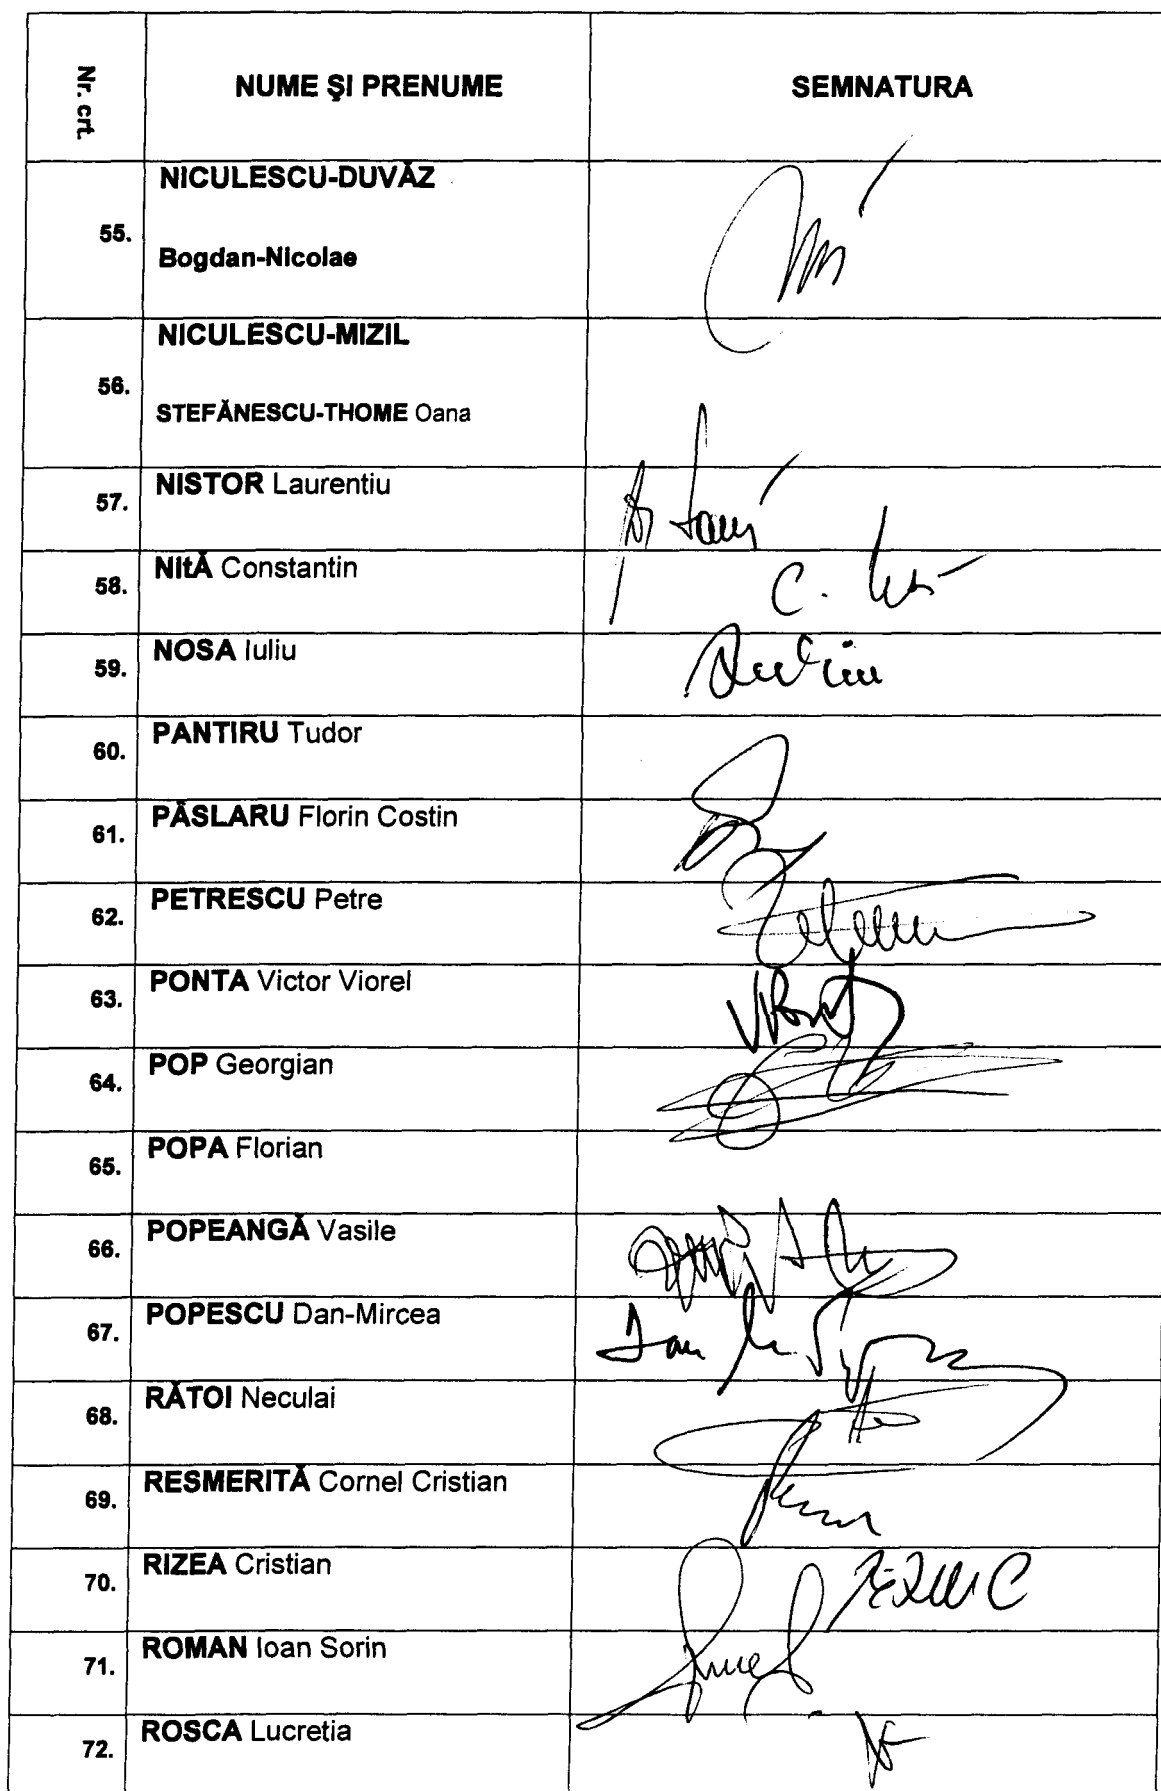 Nr. crt.
NUME ŞI PRENUME
SEMNATURA
55.
NICULESCU-DUVĂZ
Bogdan-Nicolae
56.
NICULESCU-MIZIL
STEFĂNESCU-THOME Oana
57.
NISTOR Laurentiu
58.
NItĂ Constantin
C.
59.
NOSA Iuliu
60.
PANTIRU Tudor
61.
PÂSLARU Florin Costin
62.
PETRESCU Petre
63.
PONTA Victor Viorel
64.
POP Georgian
65.
POPA Florian
66.
POPEANGĂ Vasile
67.
POPESCU Dan-Mircea
Dan
68.
RĂTOI Neculai
69.
RESMERITĂ Cornel Cristian
70.
RIZEA Cristian
71.
ROMAN Ioan Sorin
72.
ROSCA Lucretia